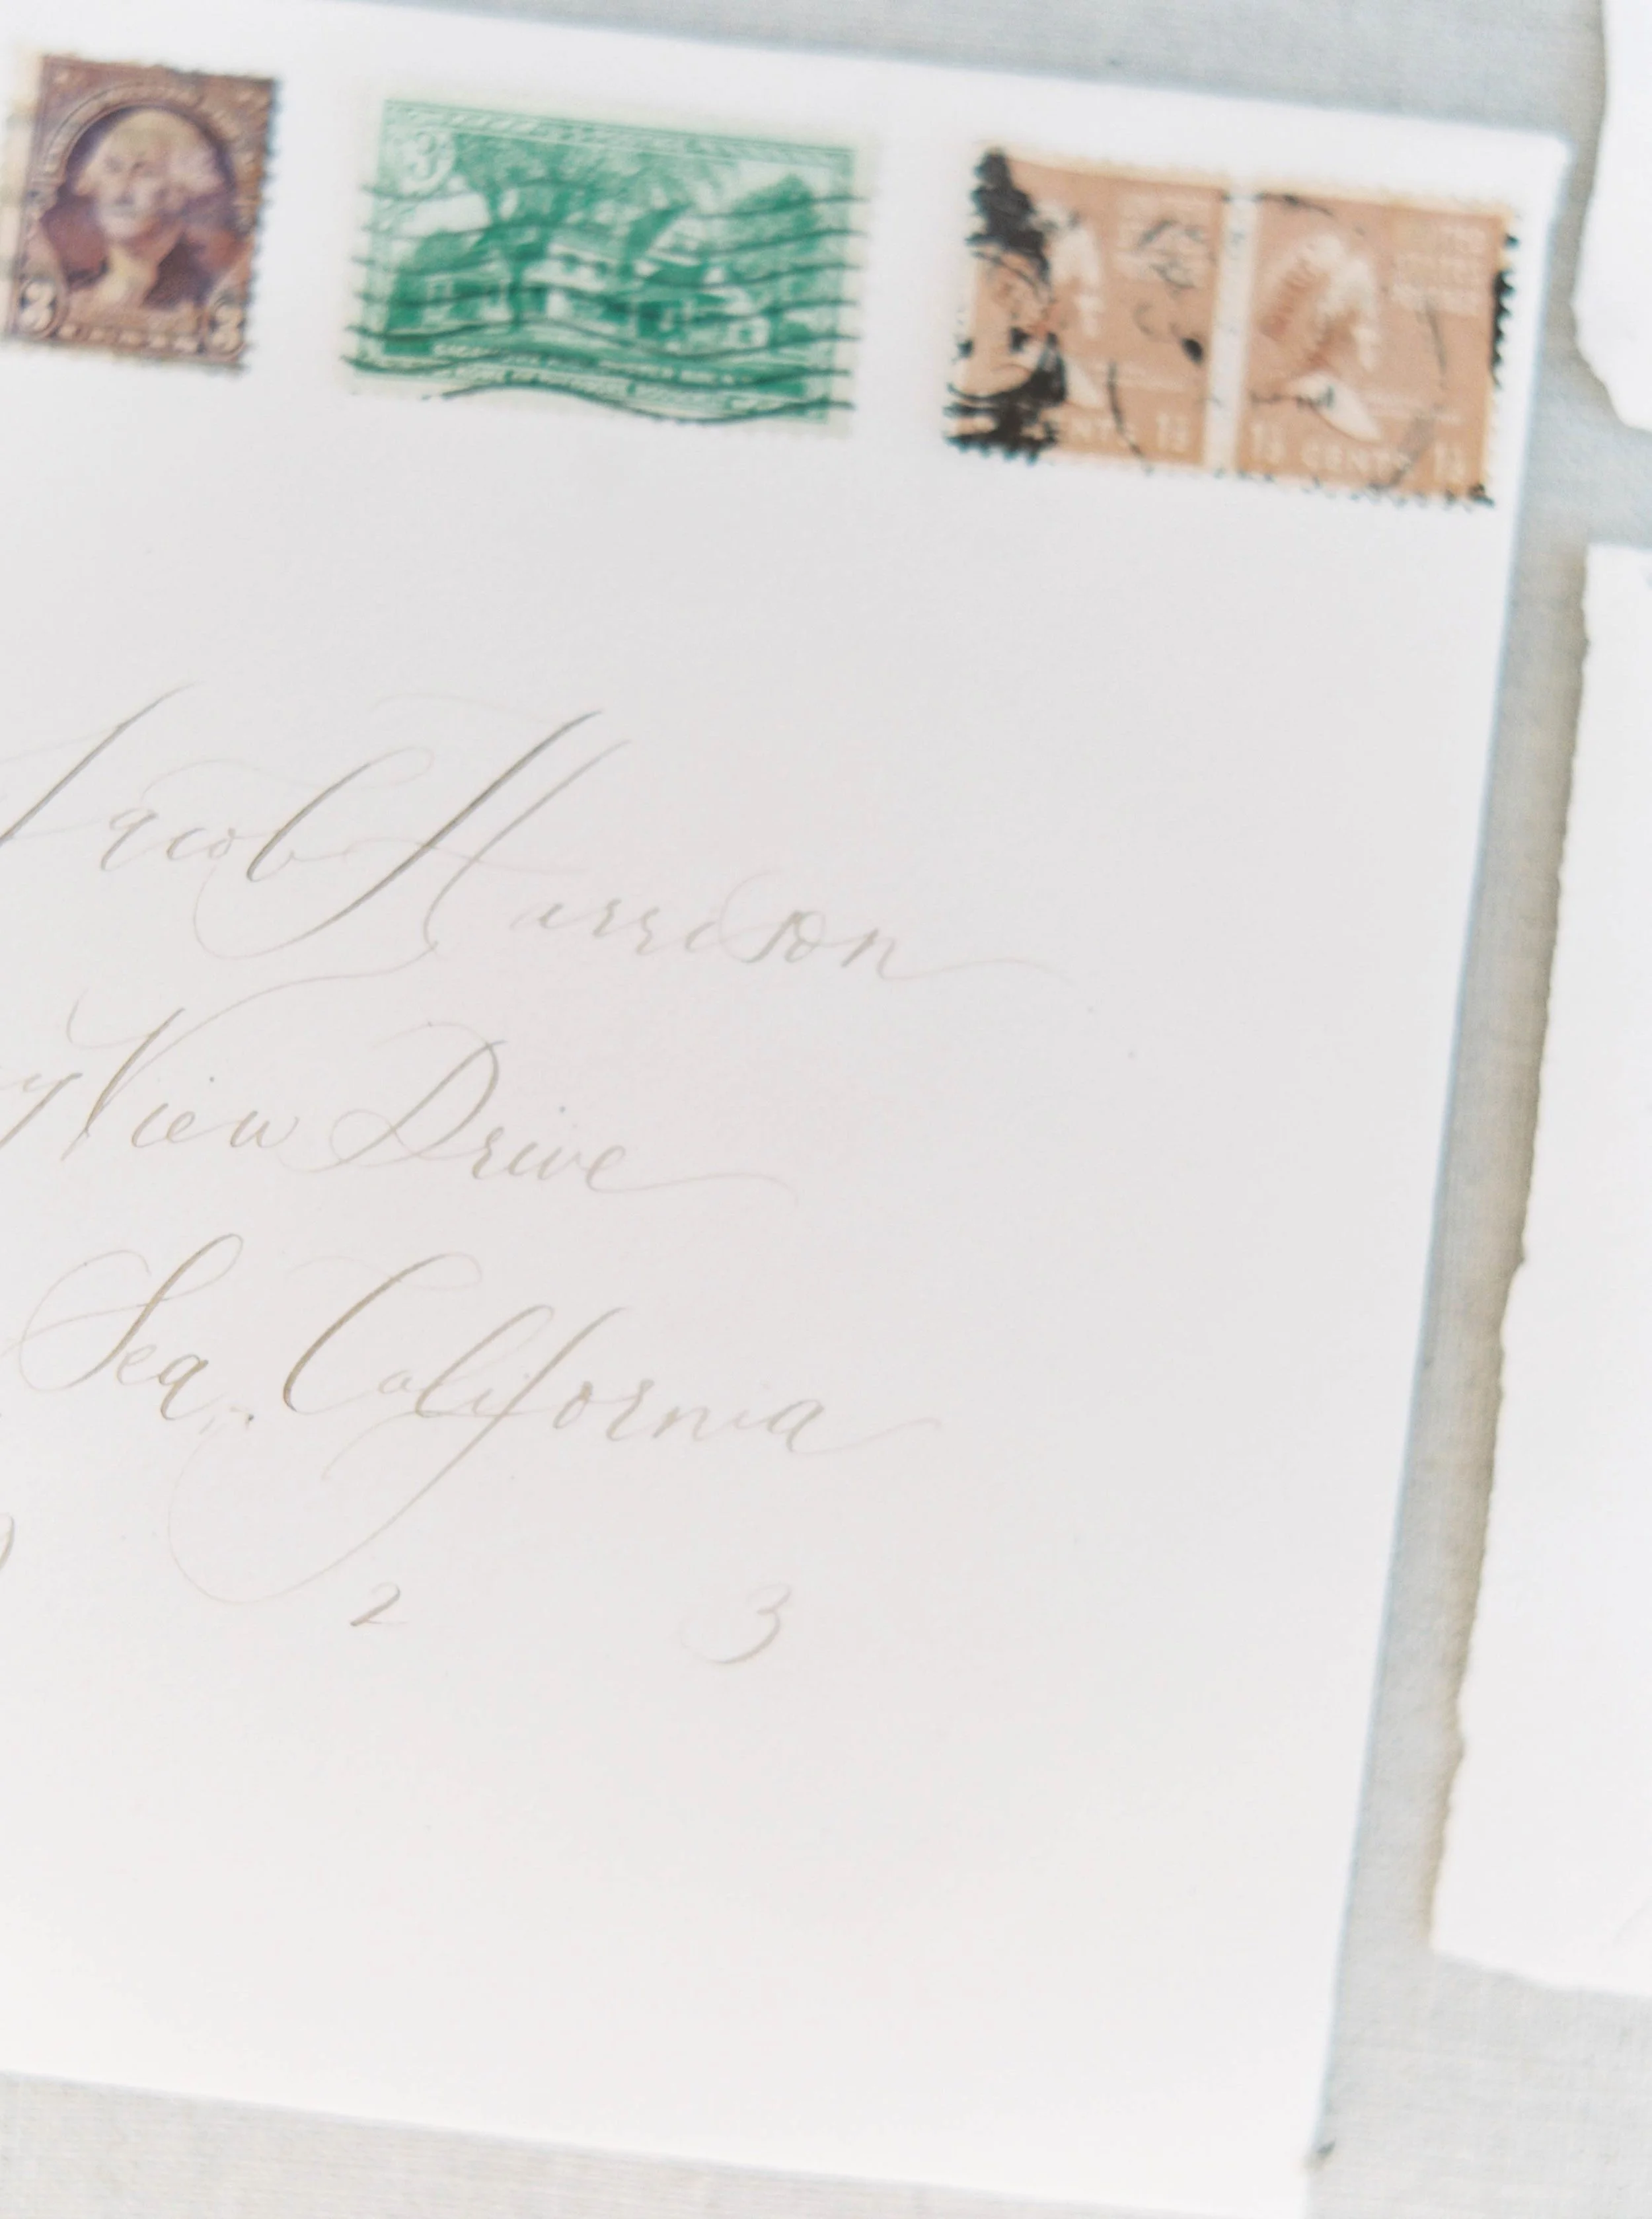 3 3
3
CENTS 1½ 1½ CENTS 1½
Jacob Harrison
y View Drive
Sea, California
2 3